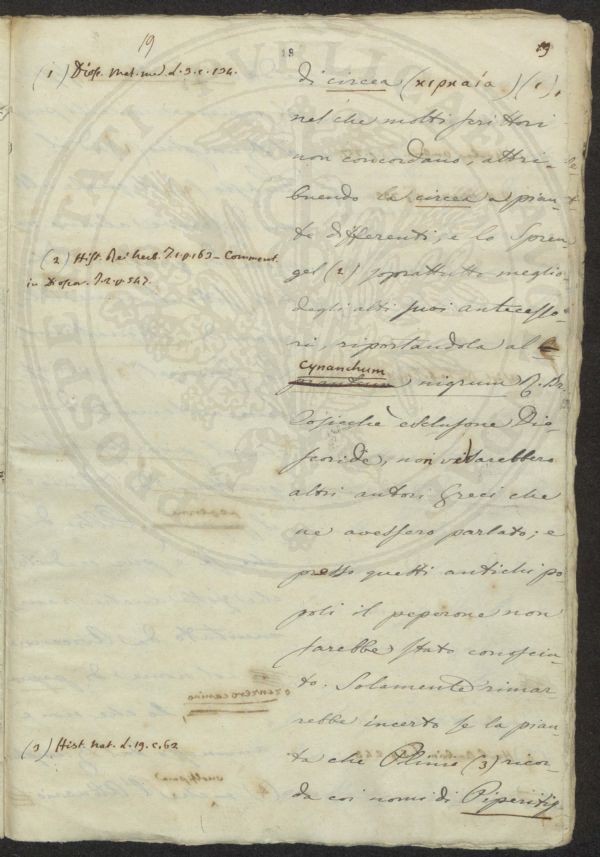 19
18
19
(1) Diosc. Mat. med. L. 3. c. 134.
(2) Hist. Rei herb. T. 1. p. 163 – Comment.
in Diosc. T. 2. p. 547.
(3) Hist. nat. L. 19. c. 62
di circea (κιρκαία) (1),
nel che molti scrittori
non concordano, attri-
buendo la circea a pian-
te differenti, e lo Spren
gel (2) soprattutto meglio
dagli altri suoi antecesso-
ri, riportandola al
Cynanchum
nigrum R. Br.
Cosicchè esclusone Dio-
scoride, non vi sarebbero
altri autori Greci che
ne avessero parlato; e
presso questi antichi po
poli il peperone non
sarebbe stato conosciu-
to. Solamente rimar-
rebbe incerto se la pian-
ta che Plinio (3) ricor-
da coi nomi di Piperitis